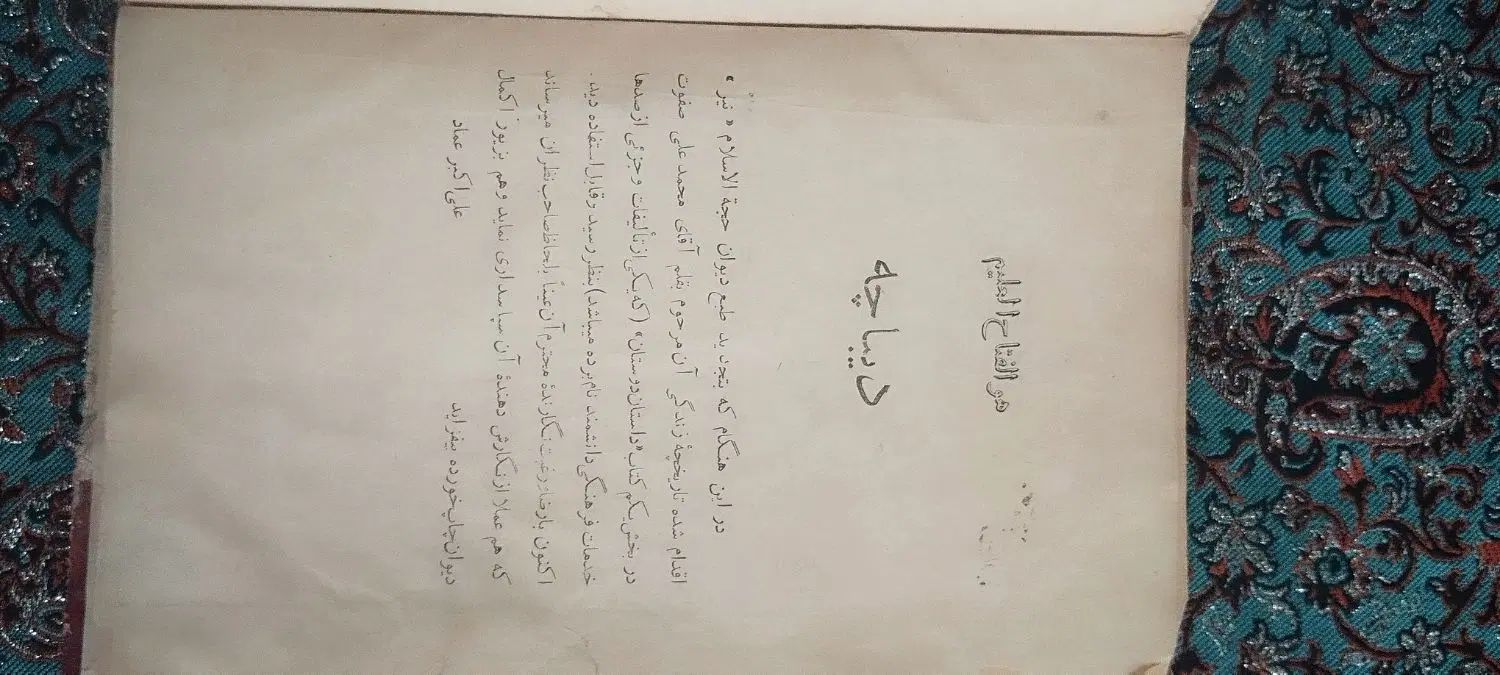 هو الفتاح العلیم
دیباچه
در این هنگام که بتجدید طبع دیوان حجة الاسلام «نیر»
اقدام شده تاریخچهٔ زندگی آن مرحوم بقلم آقای محمد علی صفوت
در بخش یکم کتاب «داستان دوستان» (که یکی از تألیفات و جزئی از صدها
خدمات فرهنگی دانشمند نام برده میباشد) بنظر رسید و قابل استفاده دید.
اکنون با رضا و رغبت نگارندهٔ محترم آن عیناً بلحاظ صاحب نظران میرساند
که هم عملا از نگارش دهندهٔ آن سپاسداری نماید و هم بزیور اکمال
دیوان چاپ خورده بیفزاید علی اکبر عماد